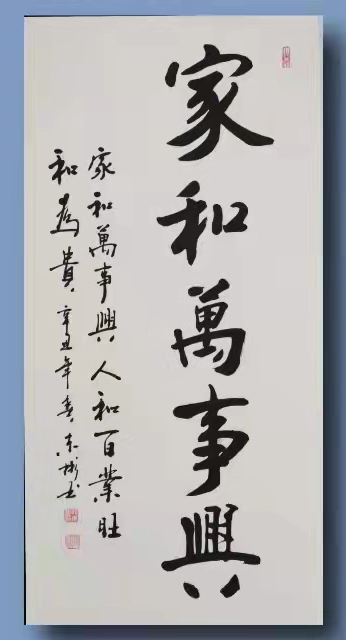 家和萬事興
家和萬事興人和百業旺
和為貴辛丑年春東彬書